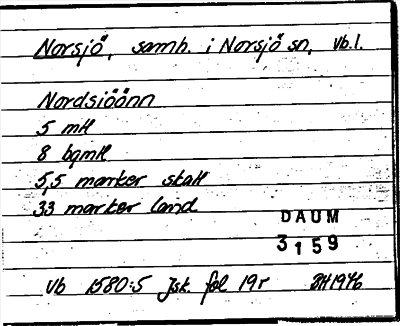 Norsjö, samh. i Norsjö sn, vb.l.
Nordsiöönn
5 mtl
8 bgmtl
5,5 marker skatt
33 marker land
DAUM
3159
Vb 1580:5 Jsk. fol 19r BH1976